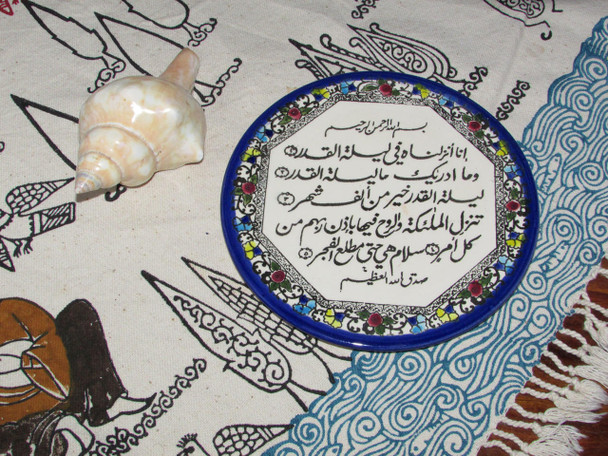 بسم الله الرحمن الرحيم
انا أنزلناه في ليلة القدر ١
وما ادريك ما ليلة القدر ٢
ليلة القدر خير من ألف شهر ٣
تنزل الملئكة والروح فيها باذن ربهم من
كل أمر ٤ سلام هي حتى مطلع الفجر ٥
صدق الله العظيم